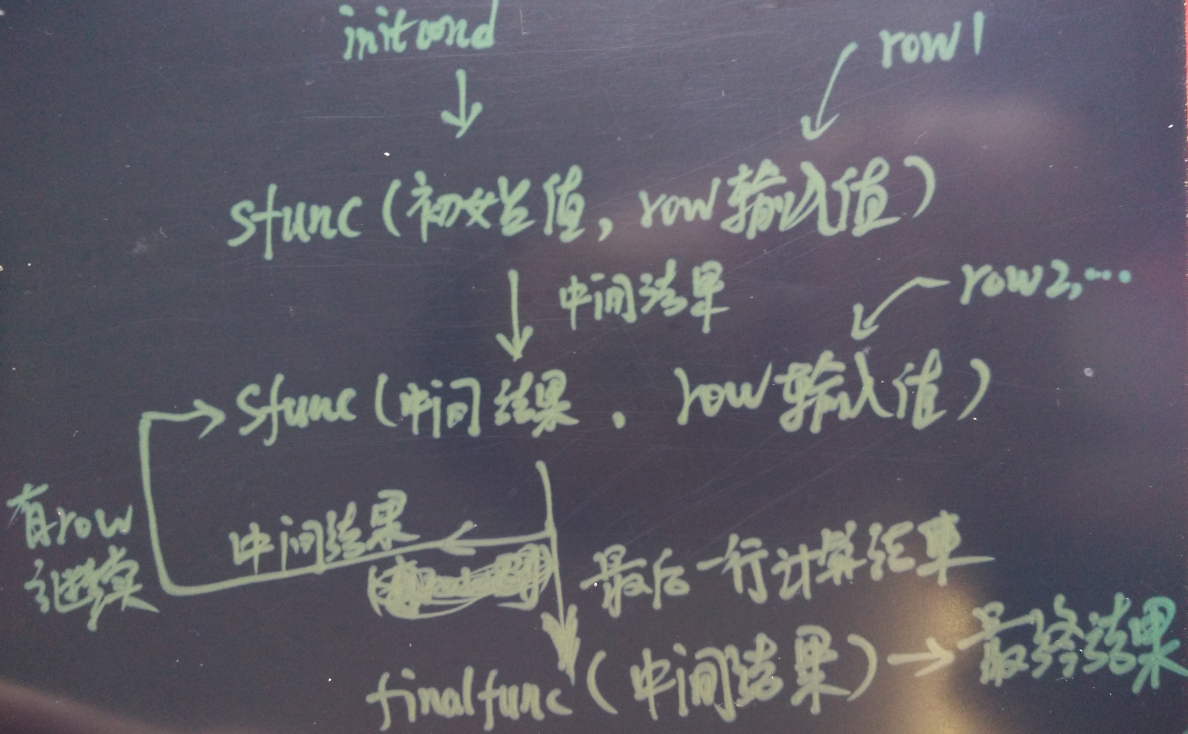 initcond
row1
sfunc(初始值, row输入值)
中间结果
row2,...
sfunc(中间结果, row输入值)
有row
继续
中间结果
最后一行计算结束
finalfunc(中间结果)→最终结果